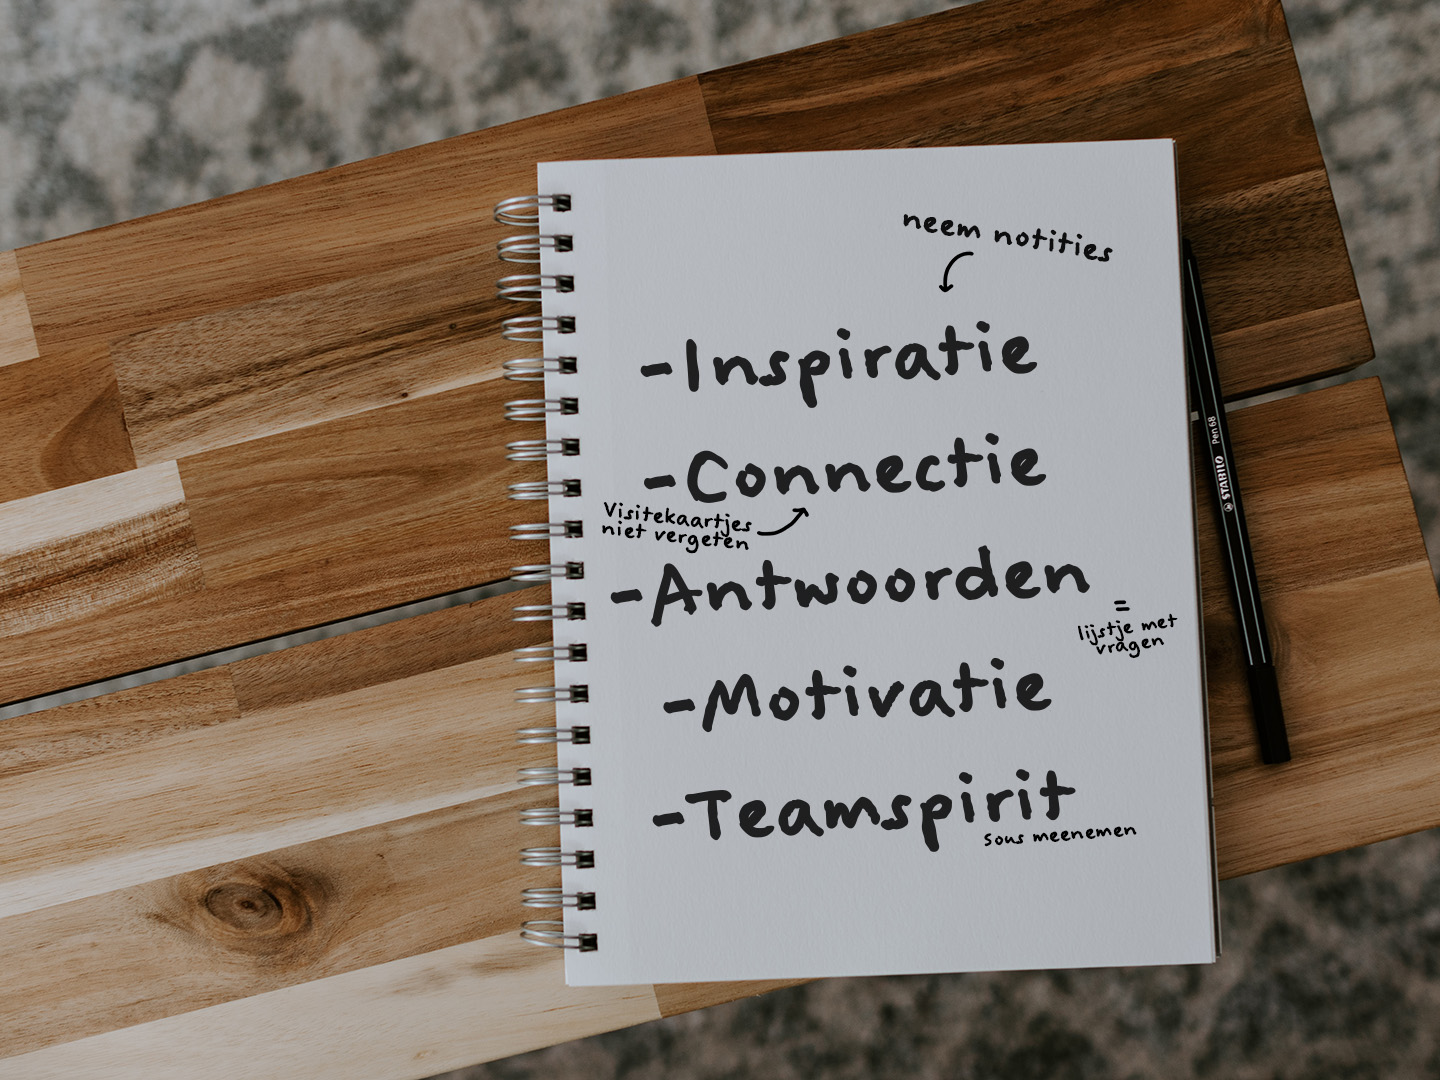 neem notities
-Inspiratie
-Connectie
Visitekaartjes
niet vergeten
-Antwoorden
=
lijstje met
vragen
-Motivatie
-Teamspirit
sous meenemen
STABILO Pen 68